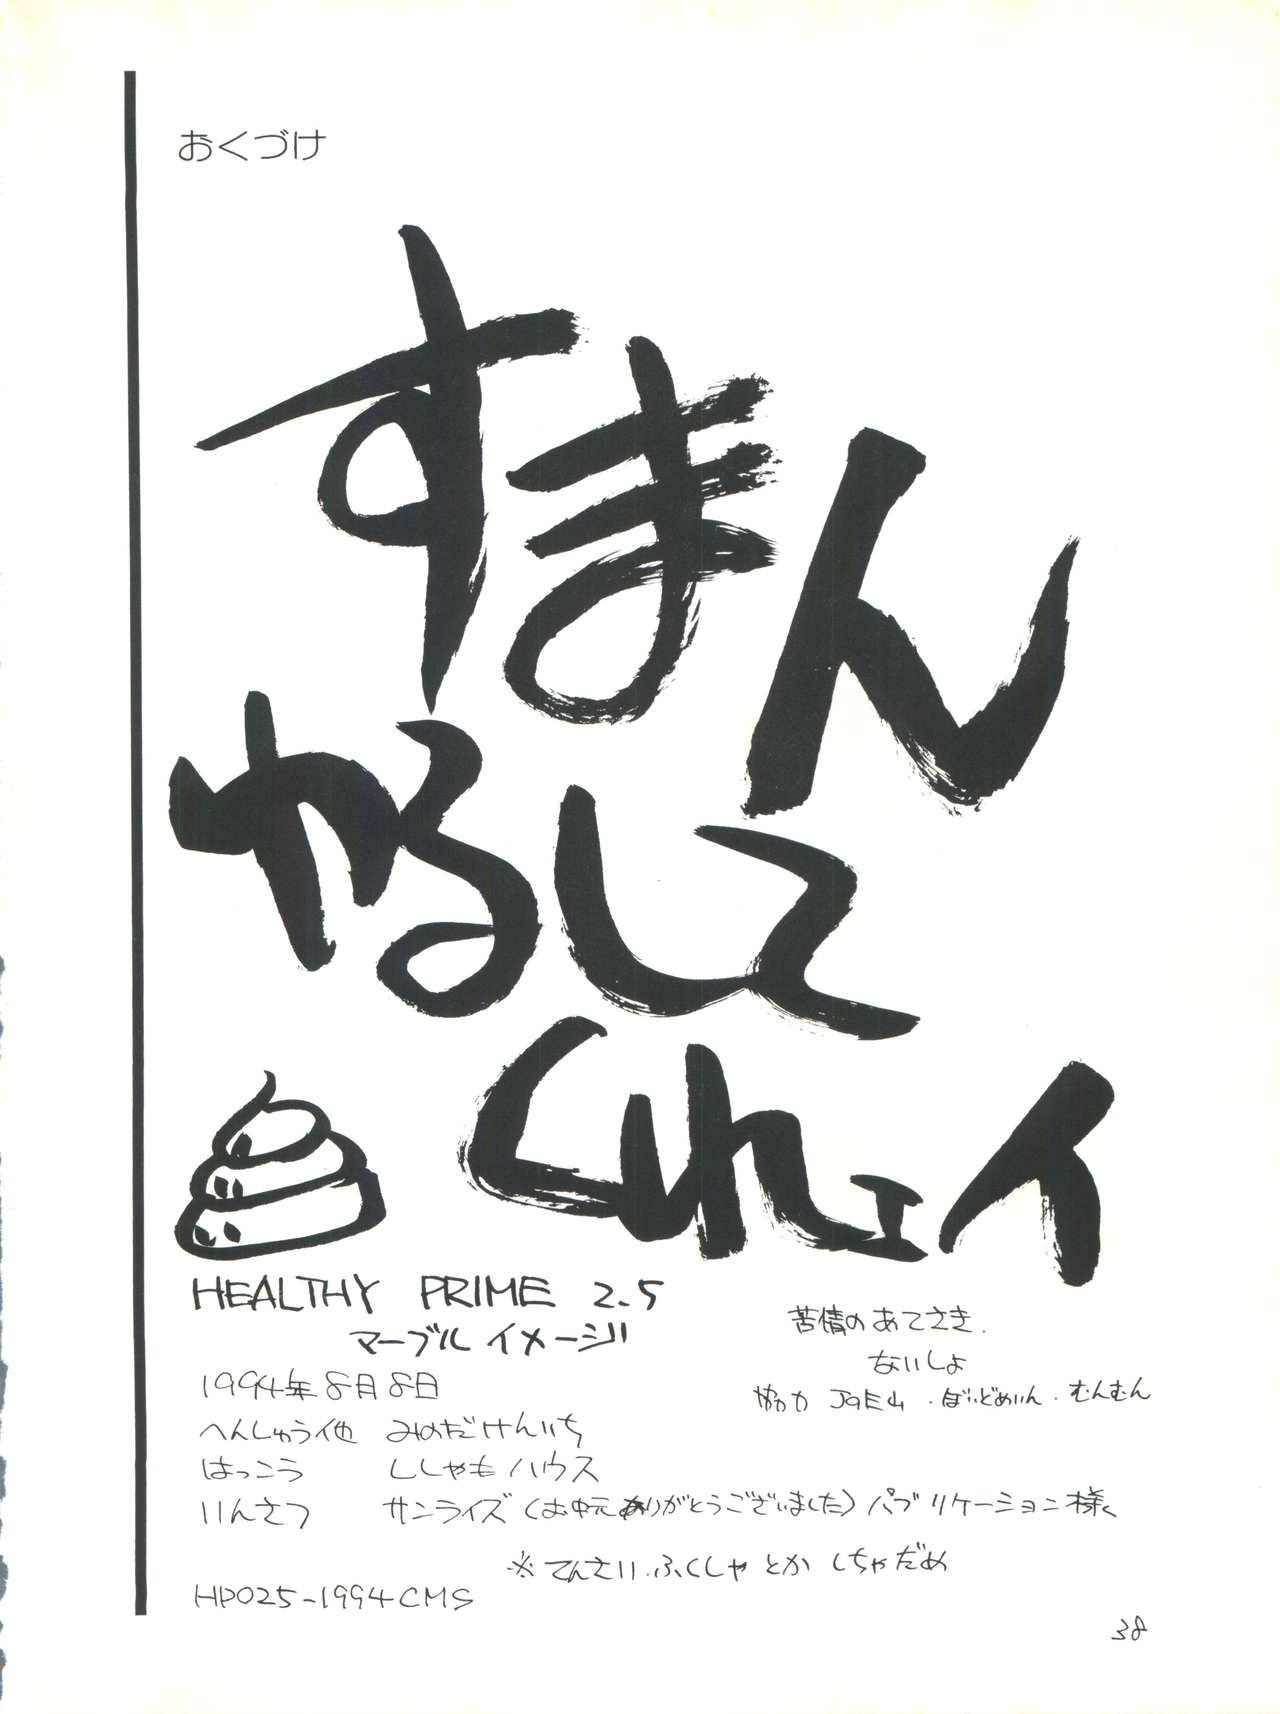 おくづけ
すまん
ゆるして
くれェイ
HEALTHY PRIME 2.5
マーブルイメージ
1994年8月8日
へんしゅう他 みのだけんいち
はっこう ししゃもハウス
いんさつ サンライズ(お中元ありがとうございました)パブリケーション様
※てんさい.ふくしゃとかしちゃだめ
HP025-1994CMS
苦情のあてさき.
ないしょ
協力 ・ぼいどめいん・むんむん
38